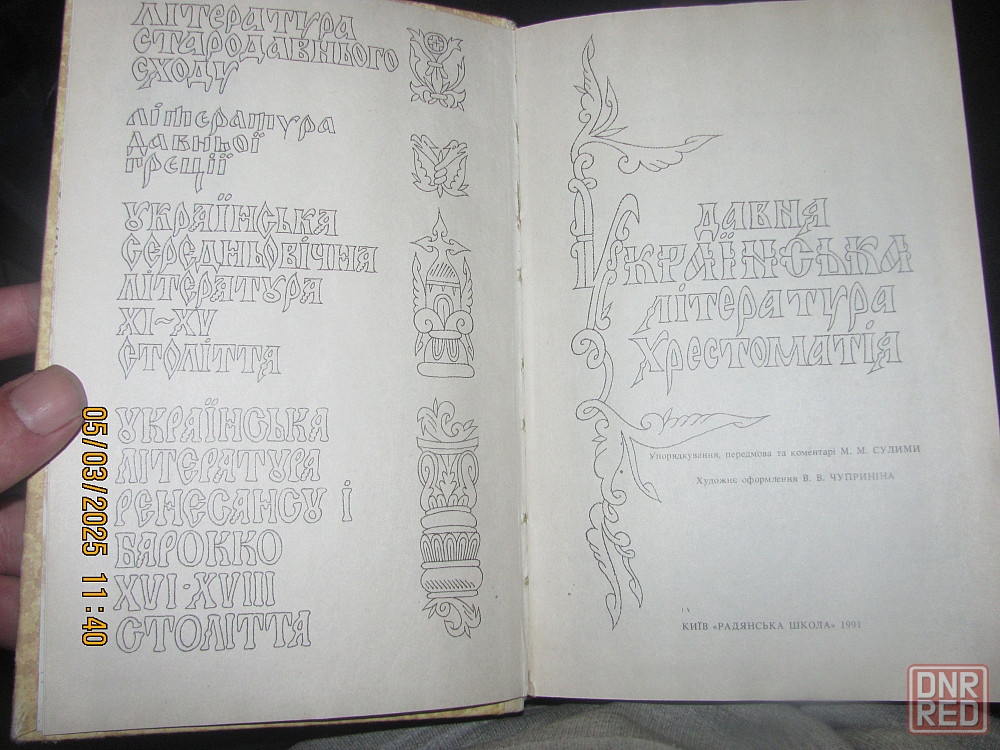 література
стародавнього
сходу
література
давньої
греції
українська
середньовічна
література
XI–XV
століття
українська
література
ренесансу і
барокко
XVI-XVIII
століття
давня
українська
література
хрестоматія
Упорядкування, передмова та коментарі М. М. СУЛИМИ
Художнє оформлення В. В. ЧУПРИНІНА
КИЇВ «РАДЯНСЬКА ШКОЛА» 1991
05/03/2025 11:40
DNR
RED